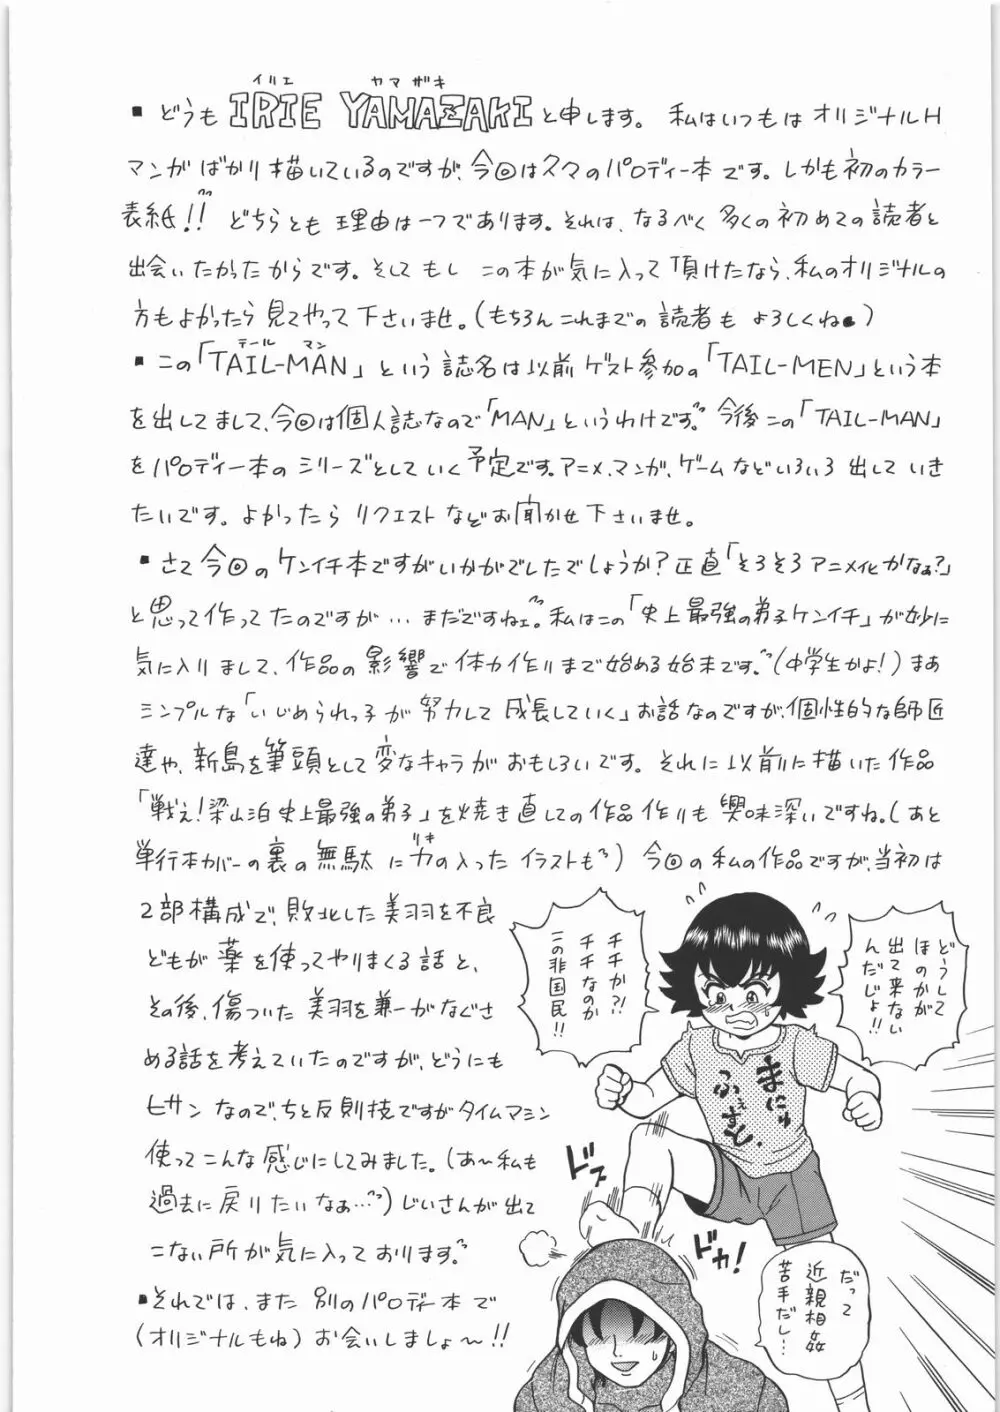 イリエ ヤマザキ
▪どうも IRIE YAMAZAKI と申します。私はいつもはオリジナルH
マンガばかり描いているのですが、今回は久々のパロディー本です。しかも初のカラー
表紙!! どちらとも理由は一つであります。それは、なるべく多くの初めての読者と
出会いたかったからです。そしてもしこの本が気に入って頂けたなら、私のオリジナルの
方もよかったら見てやって下さいませ。(もちろんこれまでの読者もよろしくね)
テール マン
▪この「TAIL-MAN」という誌名は以前ゲスト参加の「TAIL-MEN」という本
を出してまして、今回は個人誌なので「MAN」というわけです。今後この「TAIL-MAN」
をパロディー本のシリーズとしていく予定です。アニメ、マンガ、ゲームなどいろいろ出していき
たいです。よかったらリクエストなどお聞かせ下さいませ。
▪さて今回のケンイチ本ですがいかがでしたでしょうか?正直「そろそろアニメ化かなぁ?」
と思って作ってたのですが…まだですねェ。私はこの「史上最強の弟子ケンイチ」が妙に
気に入りまして、作品の影響で体力作りまで始める始末です。(中学生かよ!)まあ
シンプルな「いじめられっ子が努力して成長していく」お話なのですが、個性的な師匠
達や、新島を筆頭として変なキャラがおもしろいです。それに以前に描いた作品
「戦え!梁山泊史上最強の弟子」を焼き直しての作品作りも興味深いですね。(あと
単行本カバーの裏の無駄に力の入ったイラストも)今回の私の作品ですが、当初は
リキ
2部構成で、敗北した美羽を不良
どもが薬を使ってやりまくる話と、
その後、傷ついた美羽を兼一がなぐさ
める話を考えていたのですが、どうにも
ヒサンなので、ちと反則技ですがタイムマシン
使ってこんな感じにしてみました。(あ〜私も
過去に戻りたいなぁ…)じいさんが出て
こない所が気に入っております。
▪それでは、また別のパロディー本で
(オリジナルもね)お会いしましょ〜!!
どうして
ほのかが
出て来ない
んだじょ!!
チチか?!
チチなのか
この非国民!!
まにゅ
ふぇすと、
ドズ
ドカ!
だって
近親相姦
苦手だし…